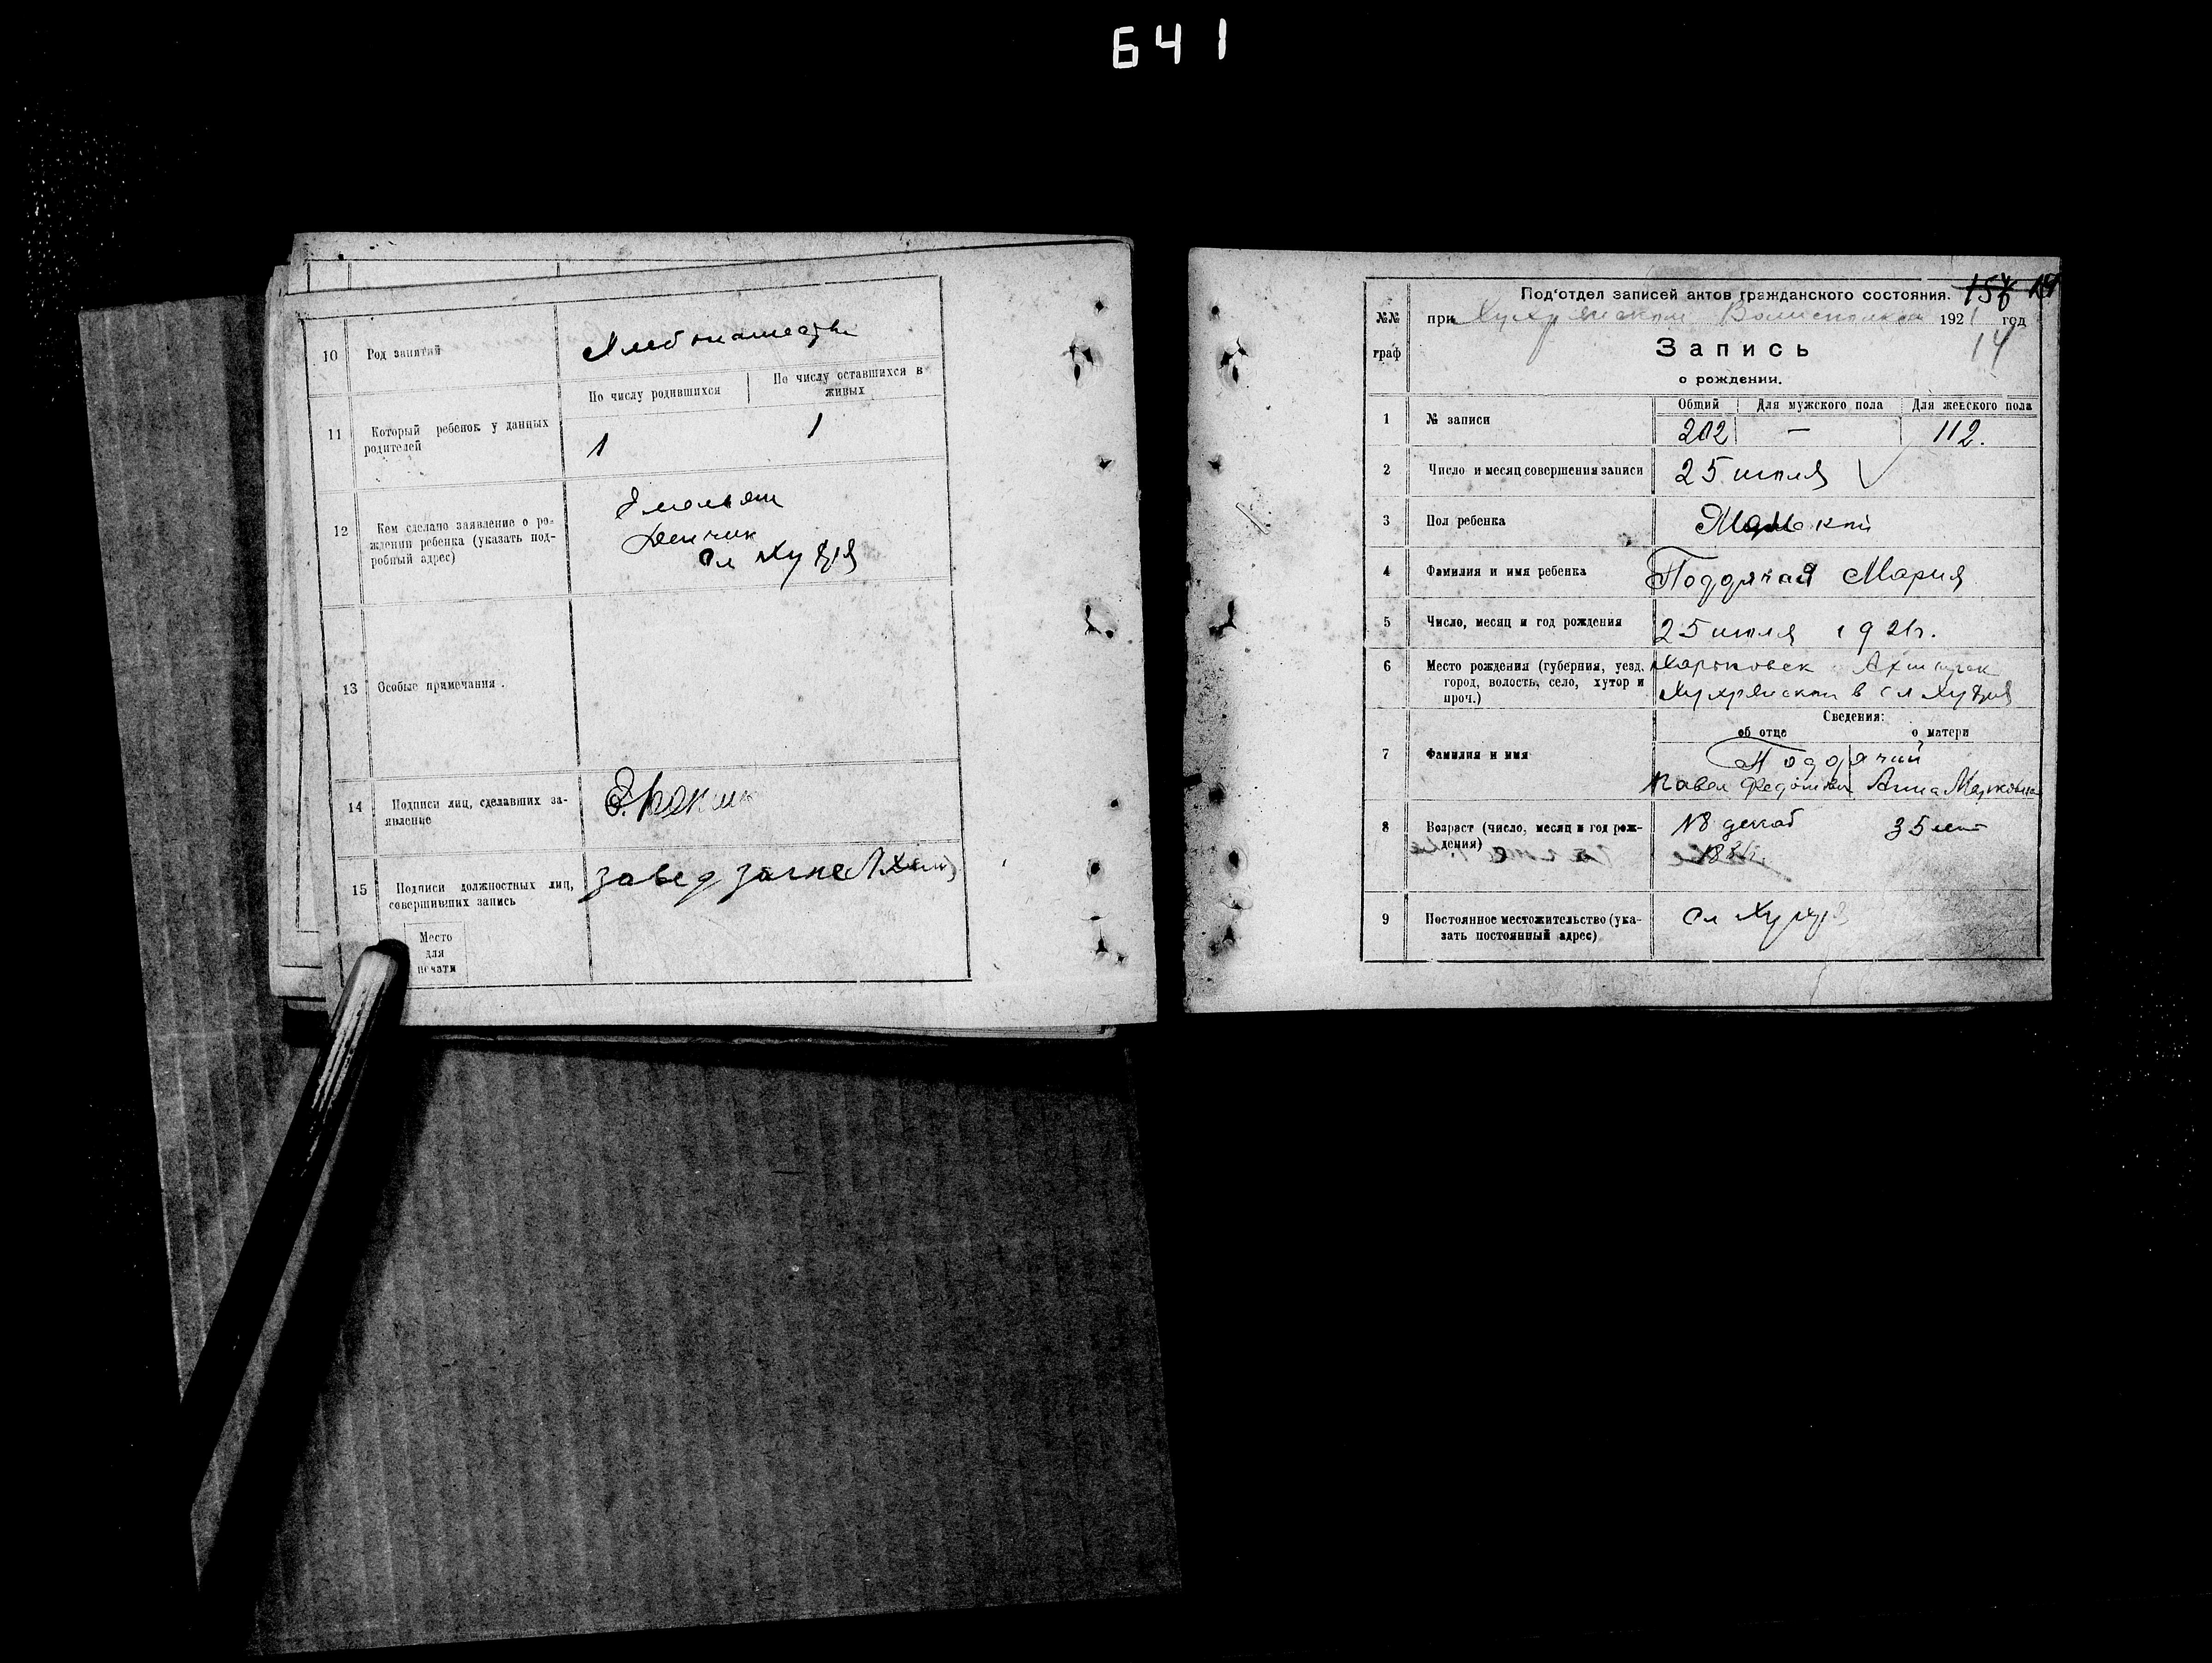 641
10 Род занятий Хлебопашество
11 Который ребенок у данных родителей
По числу родившихся
По числу оставшихся в живых
1
1
12 Кем сделано заявление о ро-
ждении ребенка (указать под-
робный адрес)
Емельян
Демчик
сл Хухря
13 Особые примечания.
14 Подписи лиц, сделавших за-
явление
15 Подписи должностных лиц,
совершивших запись
завед
Место
для
печати
№№
граф
Под'отдел записей актов гражданского состояния.
при Хухрянском Волисполкоме 1921 год
14
Запись
о рождении.
1 № записи
Общий Для мужского пола Для женского пола
202 — 112.
2 Число и месяц совершения записи 25 июля
3 Пол ребенка
4 Фамилия и имя ребенка Поддячая Мария
5 Число, месяц и год рождения 25 июля 1921г.
6 Место рождения (губерния, уезд,
город, волость, село, хутор и
проч.)
Харьковск Ахтырск
Хухрянской в сл Хухря
Сведения:
об отце о матери
7 Фамилия и имя
Поддячий
Павел Федотович Анна Марковна
8 Возраст (число, месяц и год рож-
дения)
18 декаб 35 лет
9 Постоянное местожительство (ука-
зать постоянный адрес)
сл Хухря